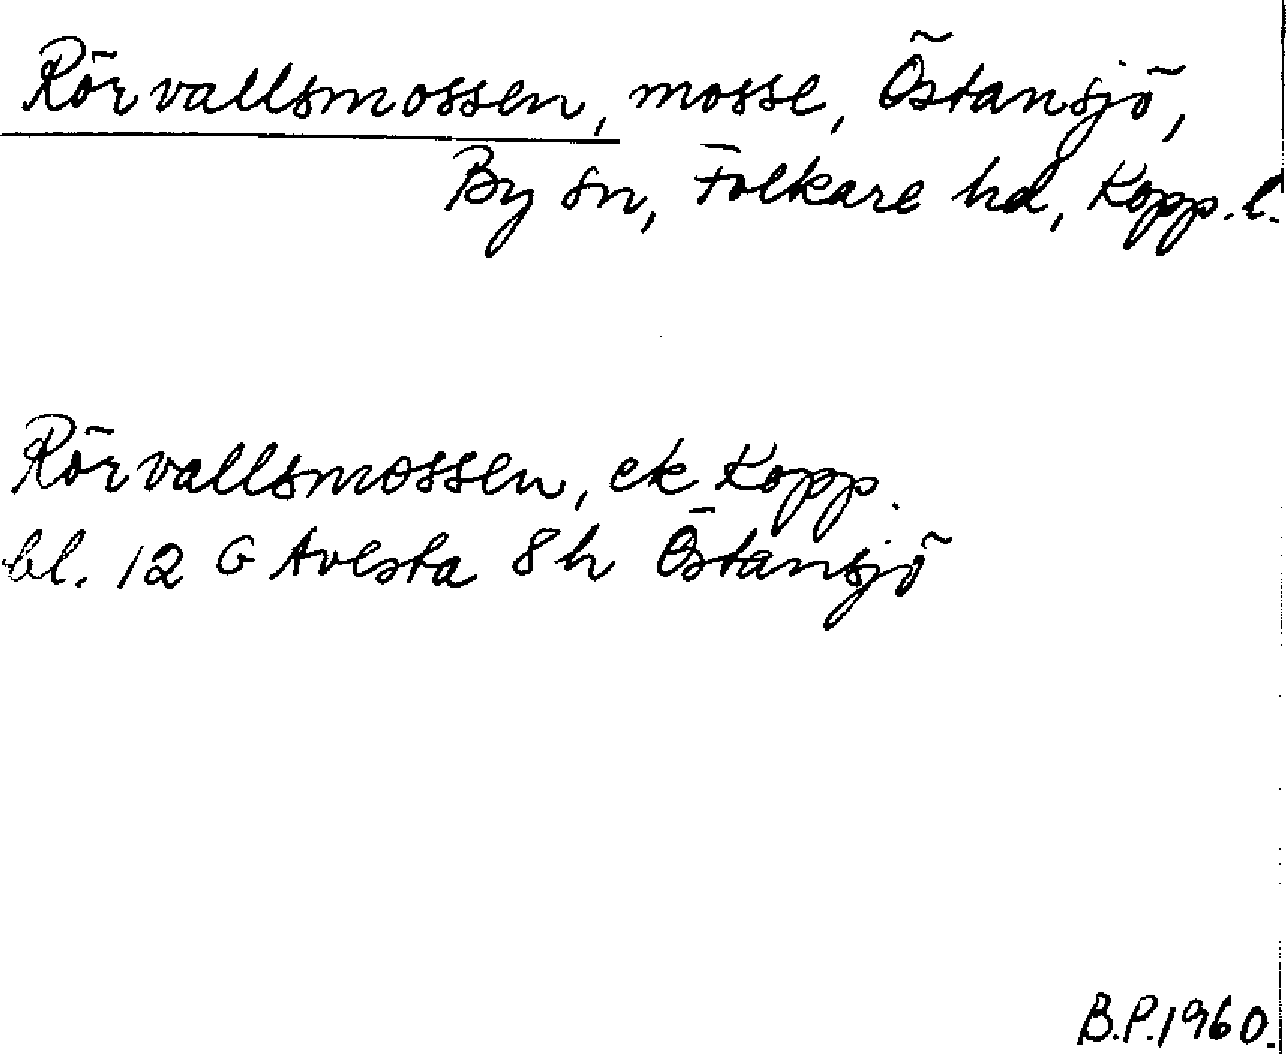 Rörvallsmossen, mosse, Östansjö,
By sn, Folkare hd, Kopp. l.
Rörvallsmossen, ek Kopp.
bl. 12 G Avesta 8h Östansjö
B.P. 1960.